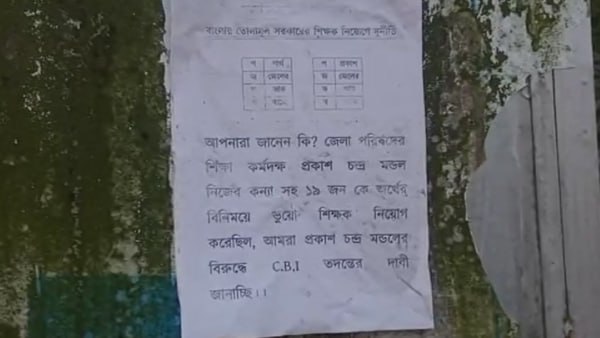 বাংলায় তোলামূল সরকারের শিক্ষক নিয়োগে দুর্নীতি
প পার্থ প প্রকাশ
জ জেলের জ জেলের
আপনারা জানেন কি? জেলা পরিষদের
শিক্ষা কর্মদক্ষ প্রকাশ চন্দ্র মন্ডল
নিজের কন্যা সহ ১৯ জন কে অর্থের
বিনিময়ে ভুয়ো শিক্ষক নিয়োগ
করেছিল, আমরা প্রকাশ চন্দ্র মন্ডলের
বিরুদ্ধে C.B.I তদন্তের দাবী
জানাচ্ছি।।